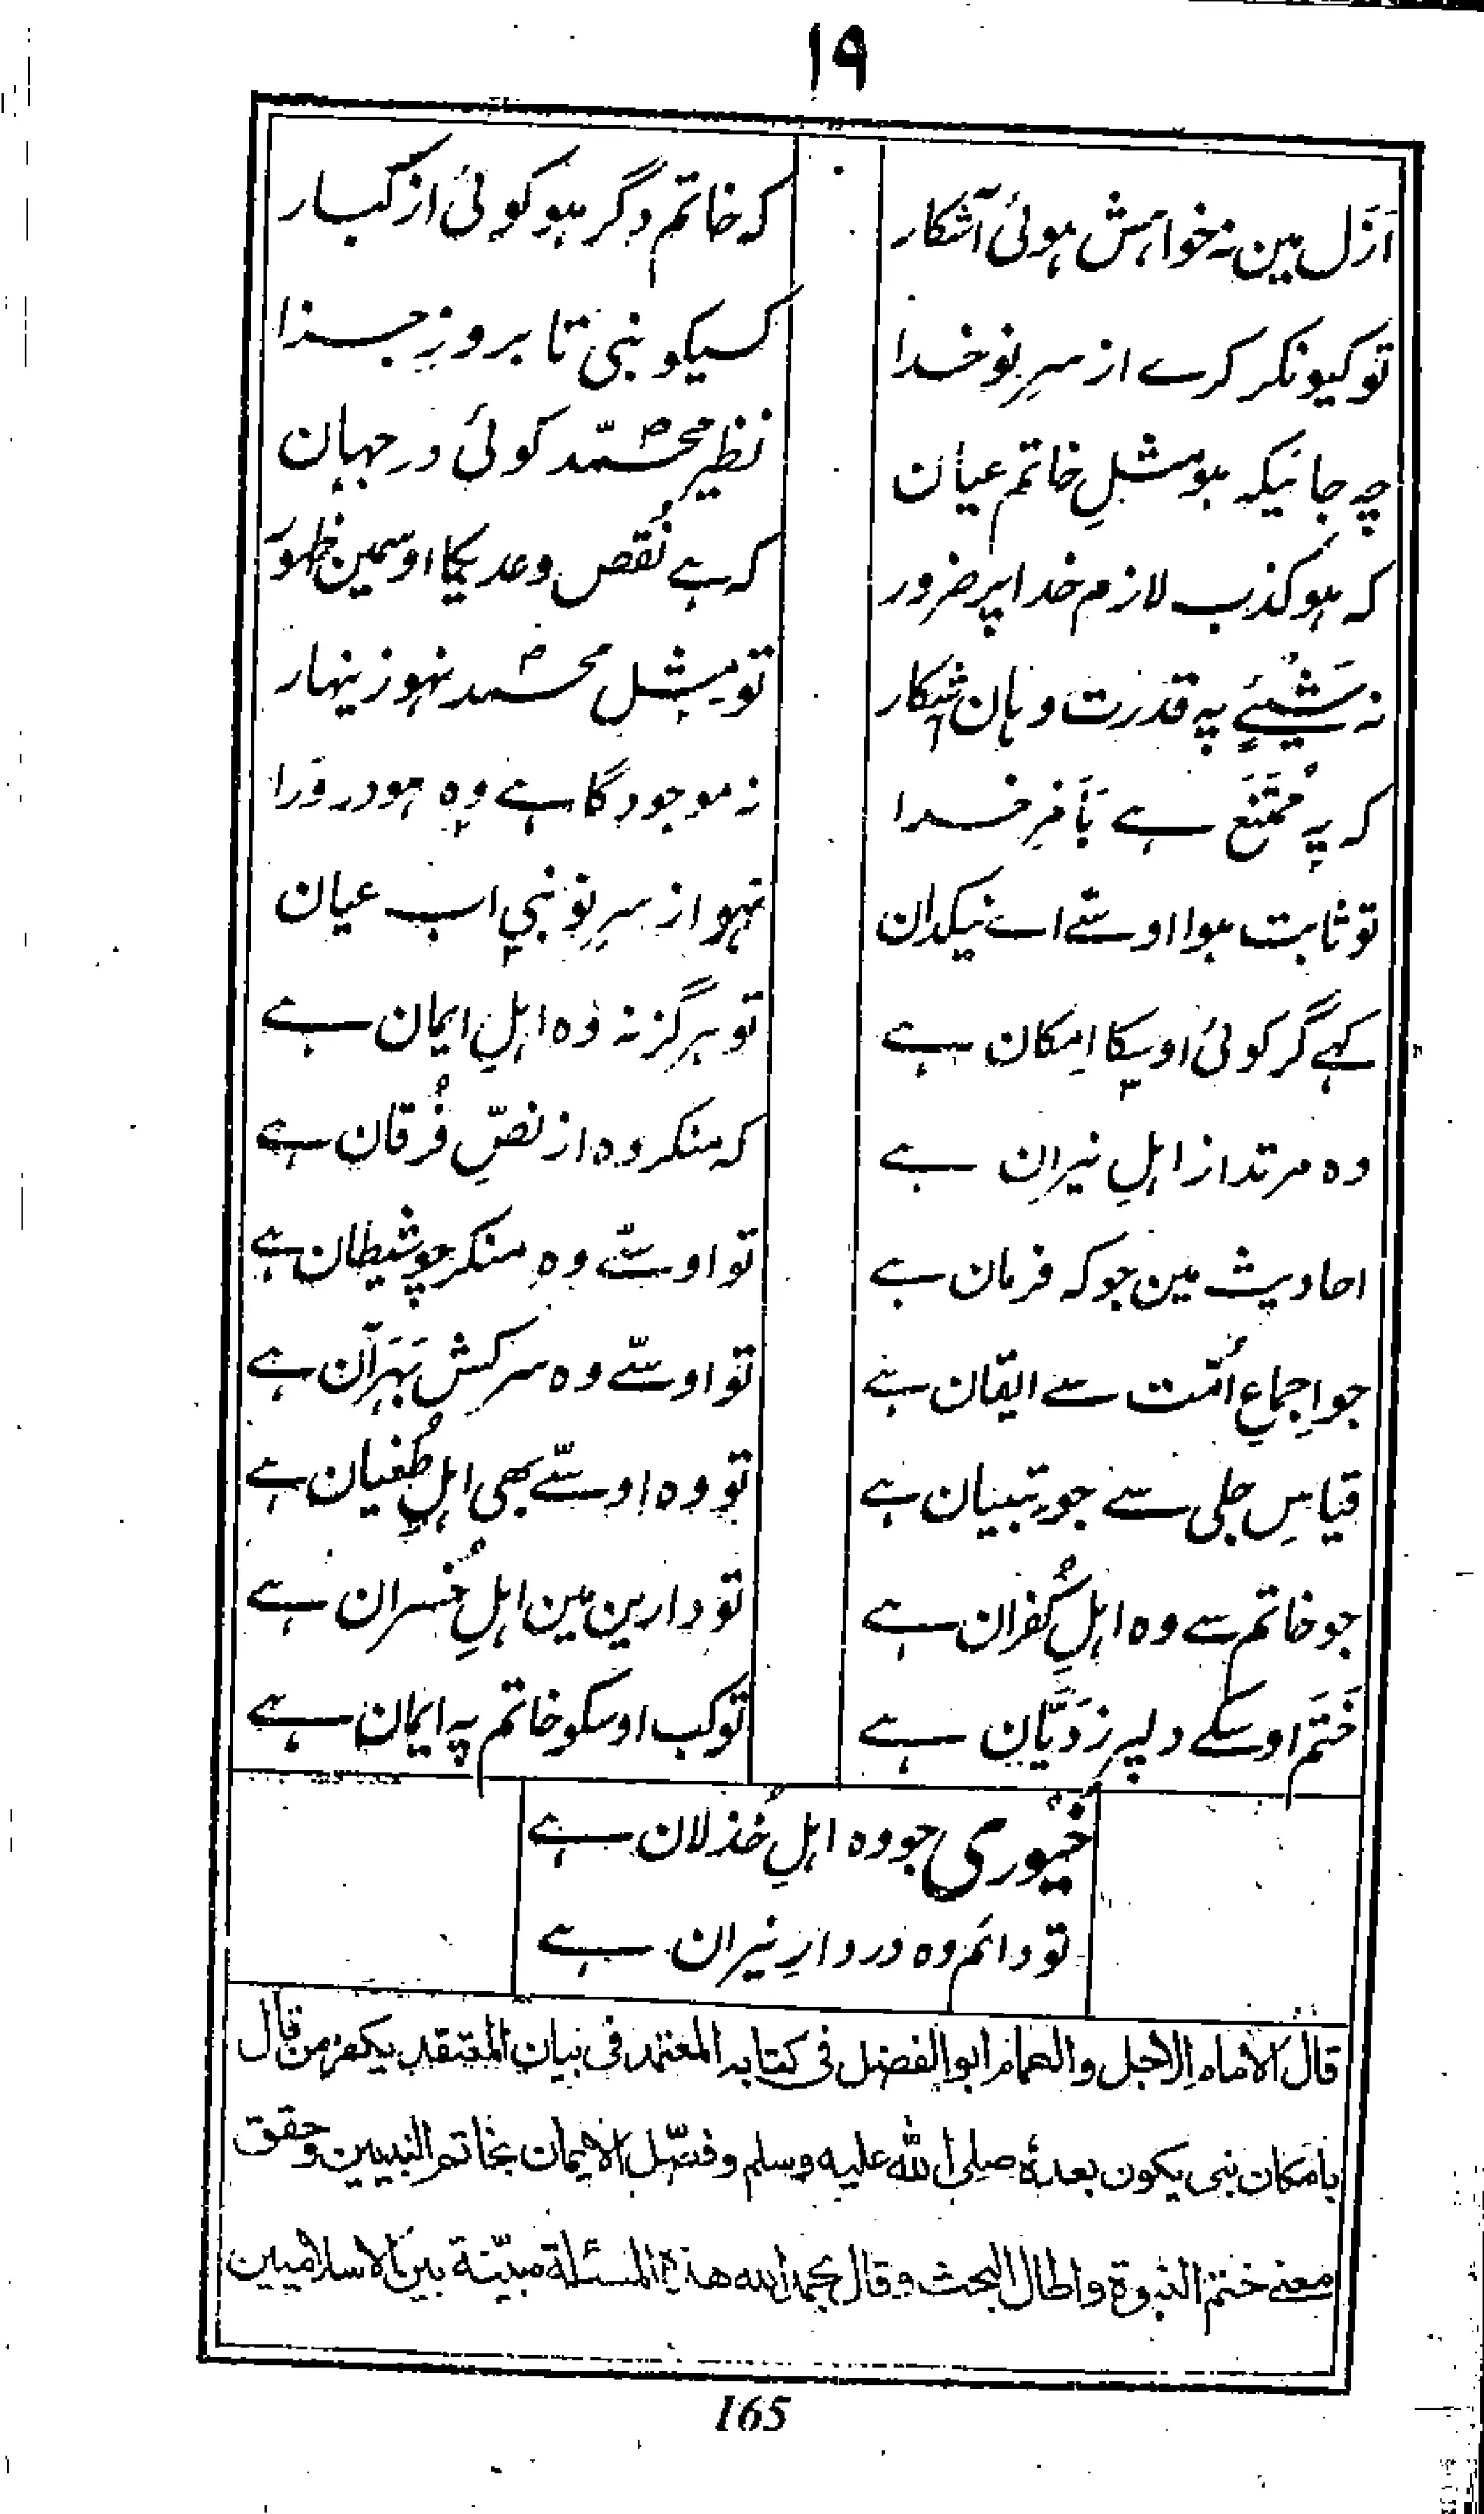 ۱۹
ازل مین نہ خواہش ہوئی آشکار کہ خاتم دگر ہو کوئی از کبار
تو کیونکر کرے از سرِ نو خدا کسیکو نبی تا بروزِ جزا
چہ جائیکہ ہو مثلِ خاتم عیان نظیرِ محمّد کوئی در جہان
کہ ہو کذب لازم خدا پر ضرور کہ ہے نُقص وعدیکا اوسمین ظہور
نہ شَیْئے پہ قدرت وہان آشکار تو مثل محمد نہو زینہار
کہ یہ مُمْتَنَع ہے بَامْرِ خدا نہ موجود گا ہے وہ ہو در وَرا
تو ثابت ہوا اوسّے اے نیکدان نہو از سرِ نو نبی اب عیان
کہے گر کوئی اوسکا اِمکان ہے تو ہرگز نہ وُہ اہلِ ایمان ہے
وہ مرتد از اہلِ نیرانِ ہے کہ منکر وہ از نصِّ فُرقان ہے
احادیث مین جو کہ فرمان ہے تو اوسّے وہ منکر چو شیطان ہے
جو اِجماعِ اُمّت سے ایقان ہے تو اوسّے وہ سرکش بَہَر آن ہے
قیاسِ جلی سے جو تبیان ہے تو وہ اوسّے بھی اہلِ طُغیان ہے
جو خاتم سے وہ اہلِ کُفران ہے تو دارین مین اہلِ خُسران ہے
خَتَم اوسکے دلپر زدَیَّان ہے تو کب اوسکو خاتم پہ ایمان ہے
خُیوری جو وہ اہلِ خُذلان ہے
تو دائم وہ در دارِ نیران ہے
قال الامام الاجل والهمام ابوالفضل فی کتابه المعتمد فی بیان المعتقد یکفر من قال
بامکان نبی یکون بعدهٔ صلی الله علیه وسلم وفصّل الایمان بخاتم النبیین وحقق
معنے ختم النبوة واطال البحث وقال بحمد الله هذه المسئلة مبیّنة بین الاسلامیین
165